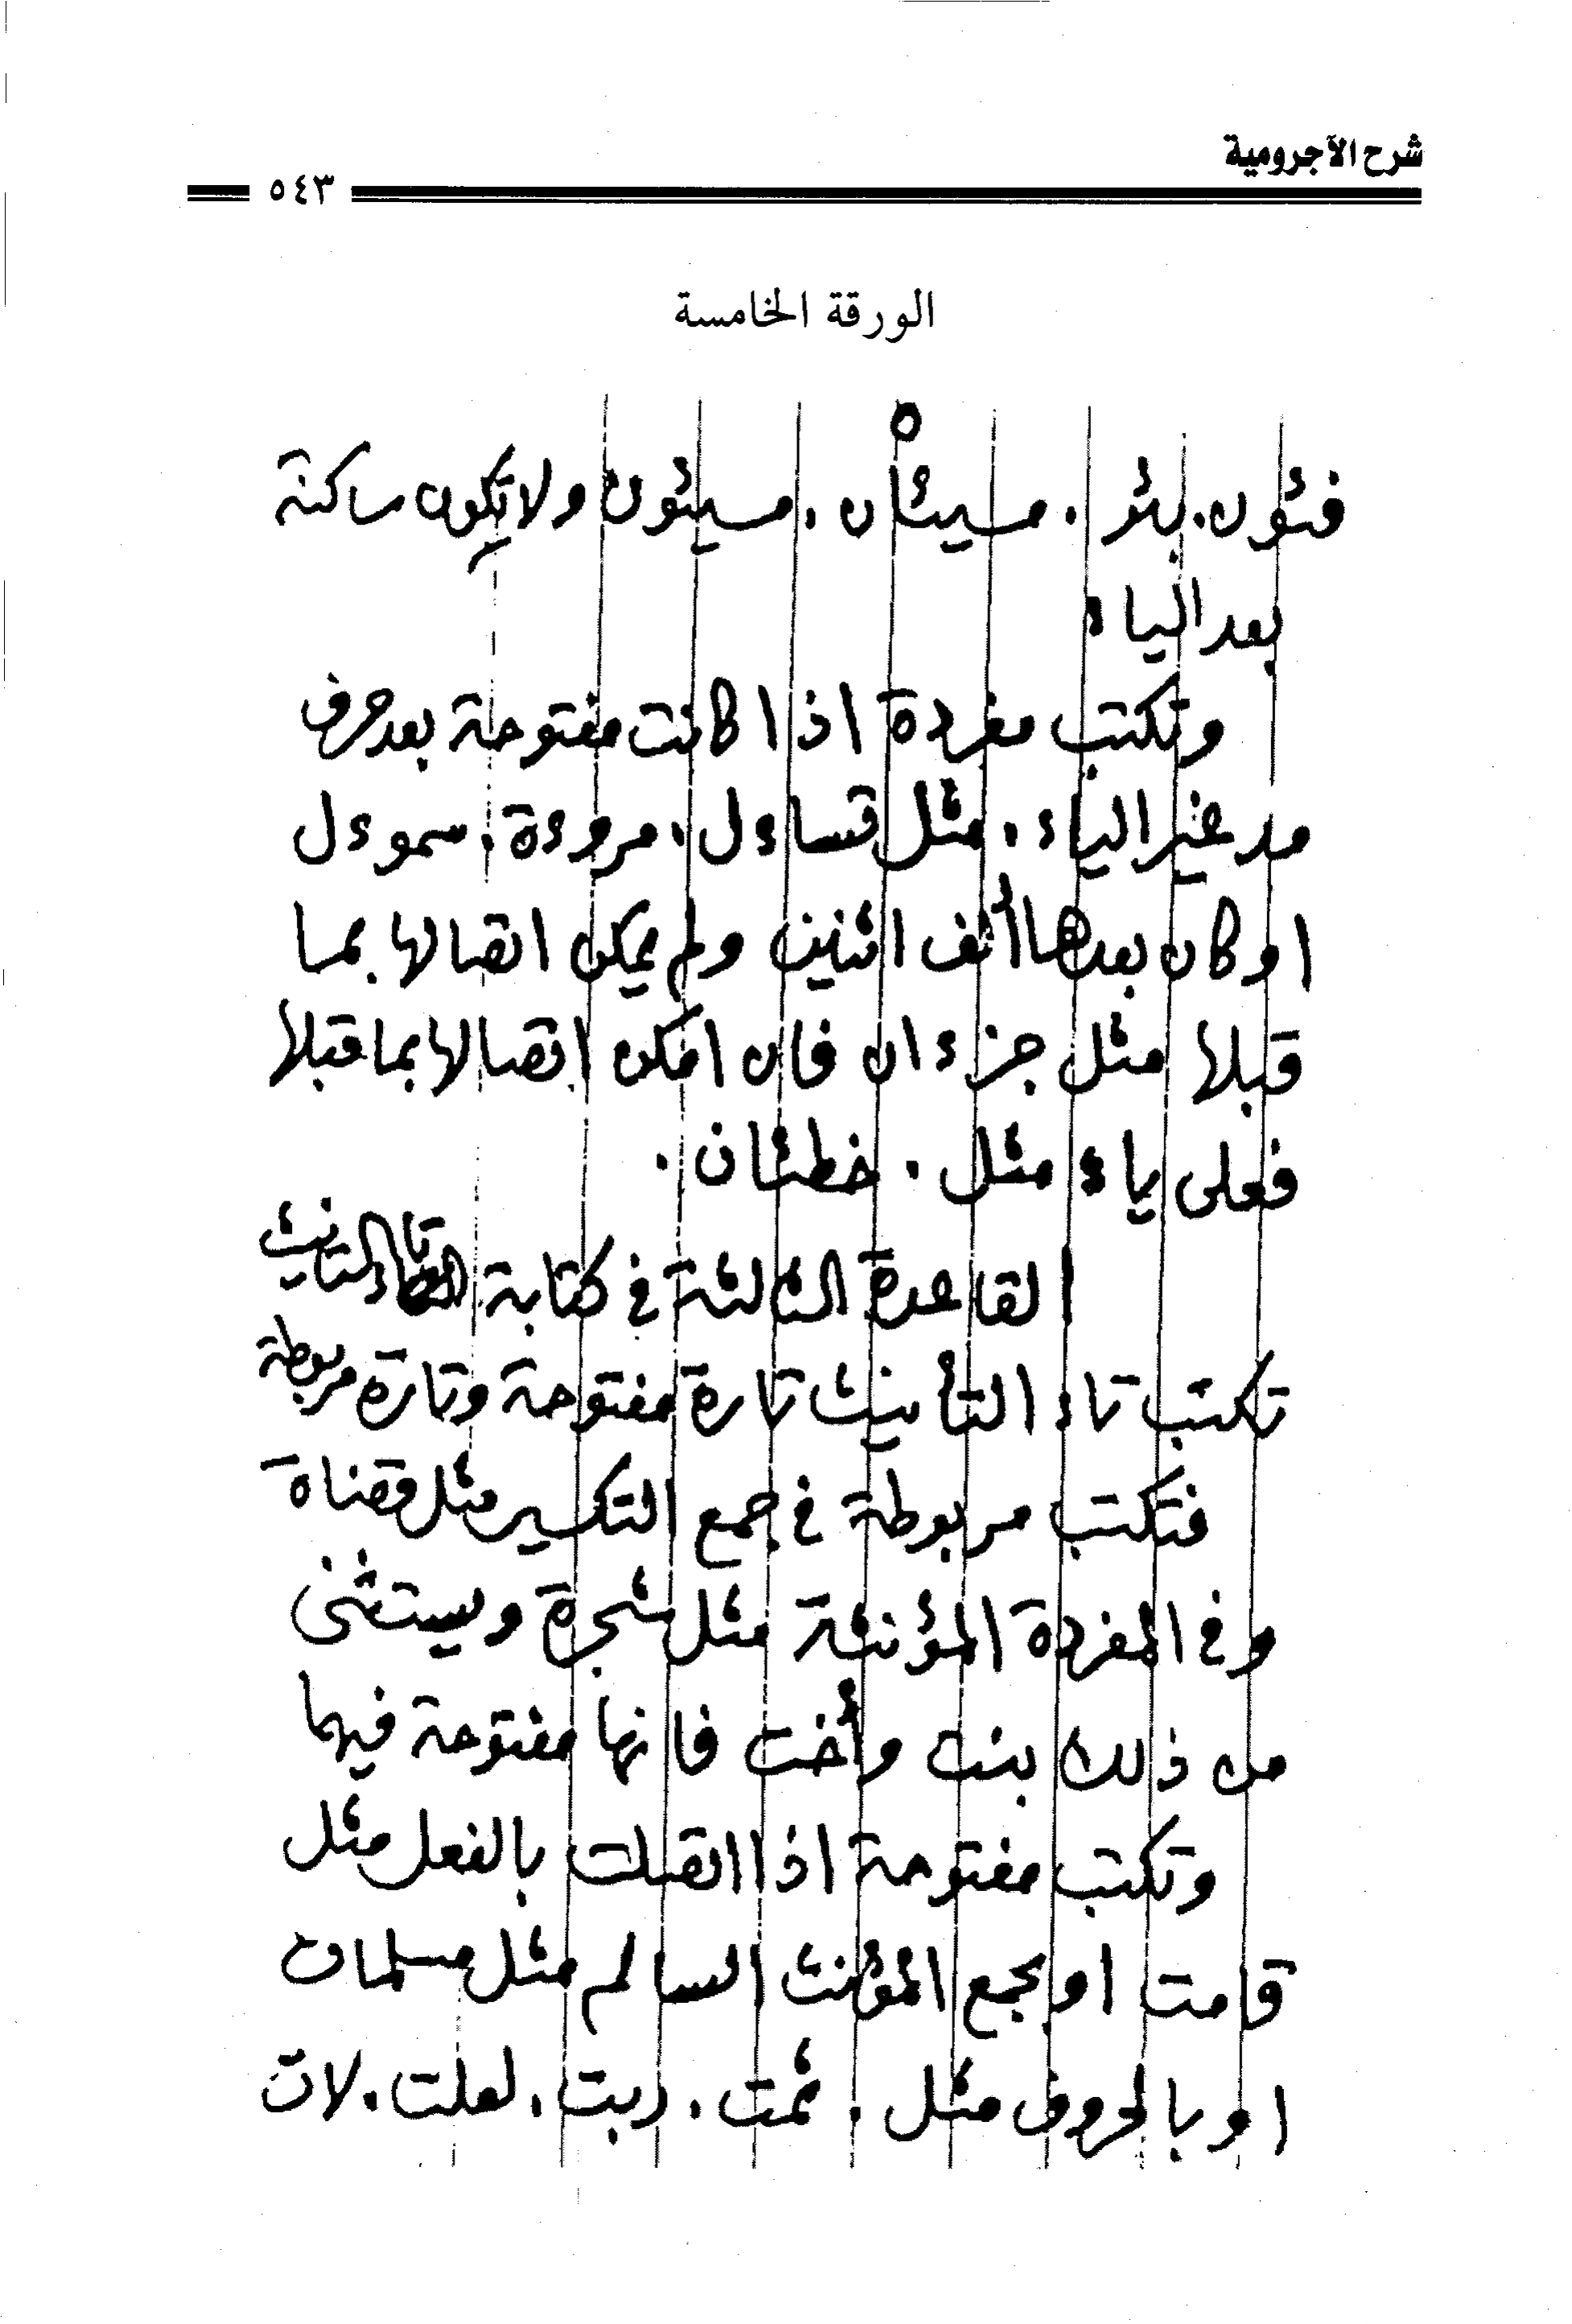 شرح الآجرومية
٥٤٣
الورقة الخامسة
٥
فئون . بئو . مسيئان . مسيئون ولا تكون ساكنة
بعد الياء
وتكتب مفردة اذا كانت مفتوحة بعد حرف
مد غير الياء . مثل تساءل . مروءة . سموءل
او كان بعدها ألف اثنين ولم يمكن اتصالها بما
قبلها مثل جزءان فان امكن اتصالها بما قبلها
فعلى ياء مثل . خطئان .
القاعدة الثالثة في كتابة تاء التانيث
تكتب تاء التأنيث تارة مفتوحة وتارة مربوطة
فتكتب مربوطة في جمع التكسير مثل قضاة
وفي المفردة المؤنثة مثل شجرة ويستثنى
من ذلك بنت وأخت فانها مفتوحة فيهما
وتكتب مفتوحة اذا اتصلت بالفعل مثل
قامت او بجمع المؤنث السالم مثل مسلمات
او بالحروف مثل . ثمت . ربت . لعلت . لات